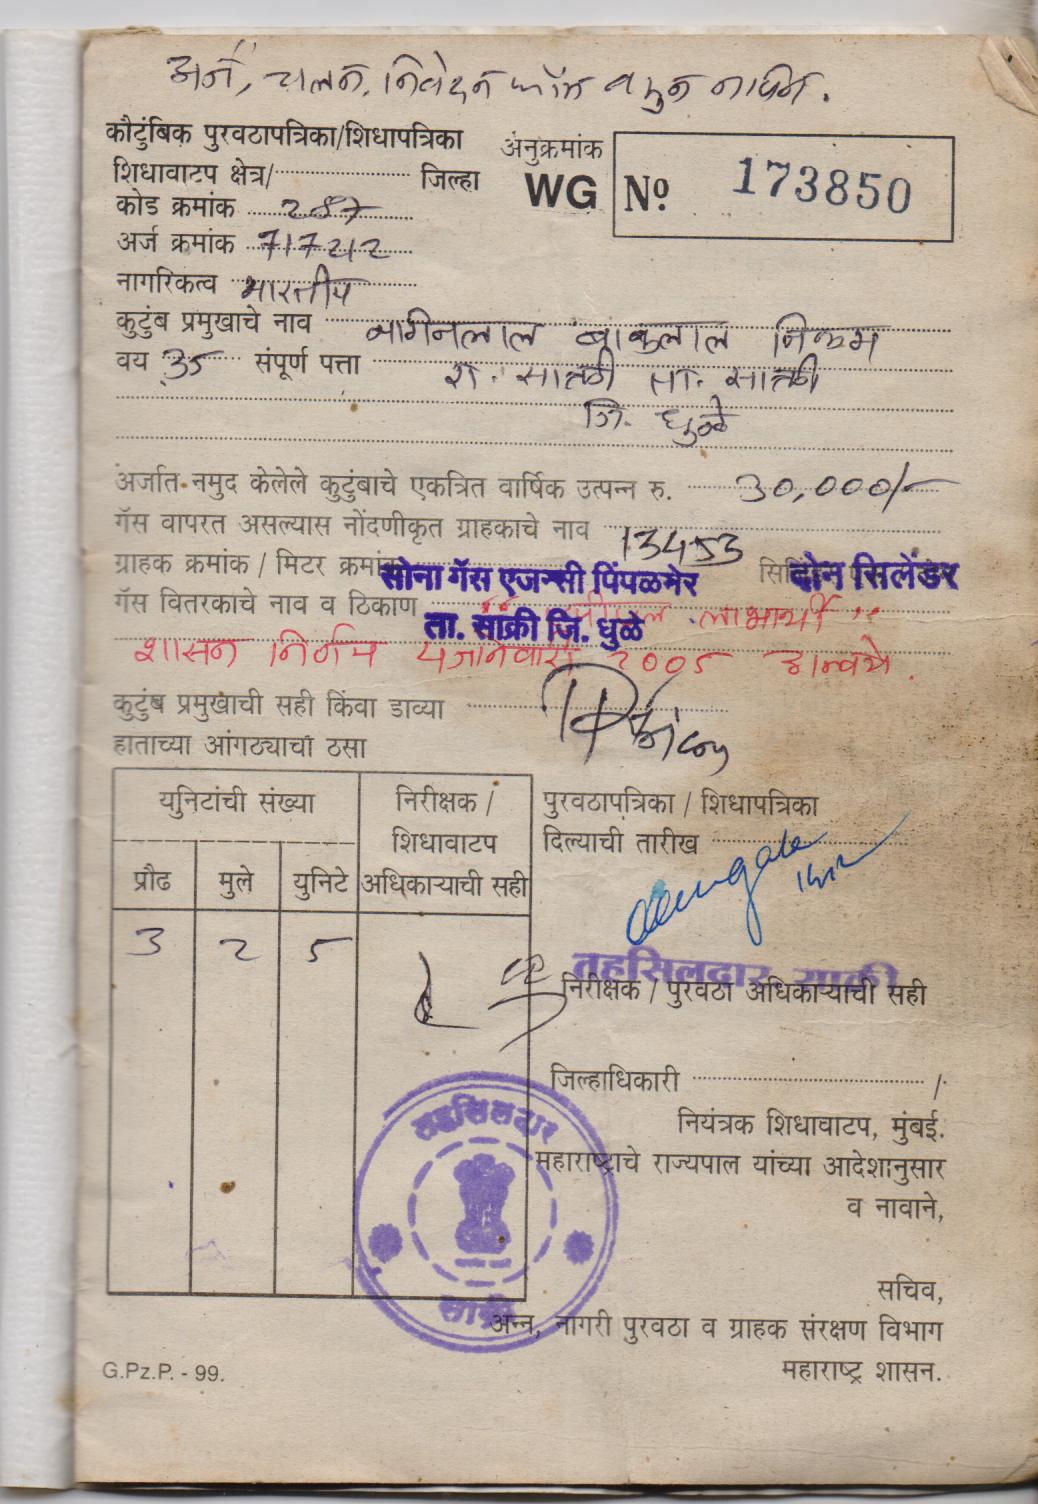 अर्ज, चलन, निवेदन फॉर्म
कौटुंबिक पुरवठापत्रिका/शिधापत्रिका
अनुक्रमांक
WG
No 173850
शिधावाटप क्षेत्र/ जिल्हा
कोड क्रमांक 287
अर्ज क्रमांक 717212
नागरिकत्व भारतीय
कुटुंब प्रमुखाचे नाव नागिनलाल बाबुलाल निकम
वय 35 संपूर्ण पत्ता रा. साक्री ता. साक्री
जि. धुळे
अर्जात नमुद केलेले कुटुंबाचे एकत्रित वार्षिक उत्पन्न रु. 30,000/-
गॅस वापरत असल्यास नोंदणीकृत ग्राहकाचे नाव 13453
ग्राहक क्रमांक / मिटर क्रमांक दोन सिलेंडर
सोना गॅस एजन्सी पिंपळनेर
गॅस वितरकाचे नाव व ठिकाण लाभार्थी
ता. साक्री जि. धुळे
शासन निर्णय जानेवारी 2005 अन्वये.
कुटुंब प्रमुखाची सही किंवा डाव्या
हाताच्या आंगठ्याचा ठसा
युनिटांची संख्या
निरीक्षक /
शिधावाटप
अधिकाऱ्याची सही
प्रौढ मुले युनिटे
3 2 5
पुरवठापत्रिका / शिधापत्रिका
दिल्याची तारीख
तहसिलदार साक्री
निरीक्षक / पुरवठा अधिकाऱ्याची सही
जिल्हाधिकारी /
नियंत्रक शिधावाटप, मुंबई.
महाराष्ट्राचे राज्यपाल यांच्या आदेशानुसार
व नावाने,
तहसिलदार
साक्री
सचिव,
अन्न, नागरी पुरवठा व ग्राहक संरक्षण विभाग
महाराष्ट्र शासन.
G.Pz.P. - 99.